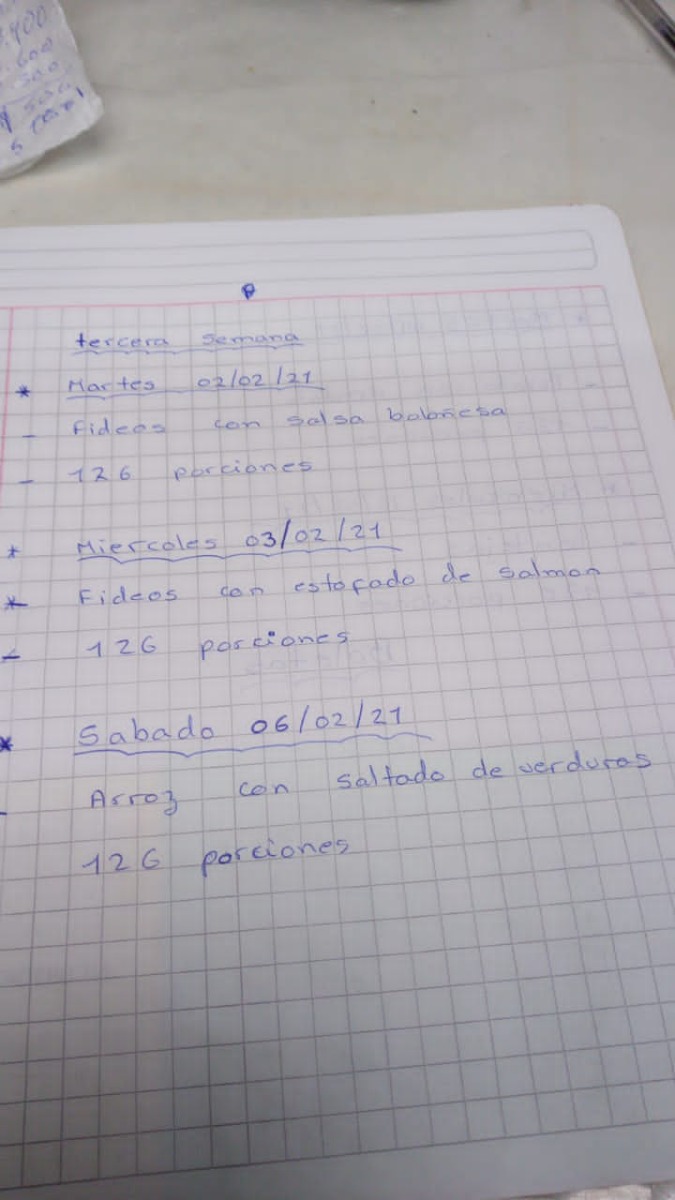 .400
.600
tercera semana
* Martes 02/02/21
- Fideos con salsa boloñesa
- 126 porciones
* Miercoles 03/02/21
* Fideos con estofado de salmon
- 126 porciones
* Sabado 06/02/21
- Arroz con saltado de verduras
126 porciones